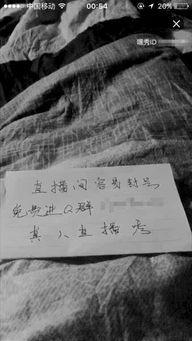 中国移动 00:54 20%
嘿秀ID
直播间容易封号
免费进Q群
真人直播秀